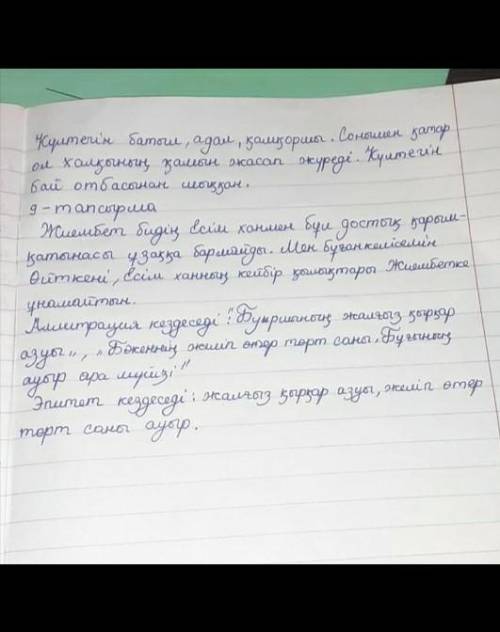 Күлтегін батыл, адал, қамқоршы. Сонымен қатар
ол халқының қамын жасап жүреді. Күлтегін
бай отбасынан шыққан.
9-тапсырма
Жиембет бидің Есім ханмен бұл достық қарым-
қатынасы ұзаққа бармайды. Мен бұған келісемін
Өйткені, Есім ханның кейбір қылықтары Жиембетке
ұнамайтын.
Аллитрация кездеседі: "Буыршының жалғыз қырқар
азуы", "Бөкеннің желіп өтер төрт саны. Бұғының
ауыр ара мүйізі"
Эпитет кездеседі: жалғыз қырқар азуы, желіп өтер
төрт саны ауыр.